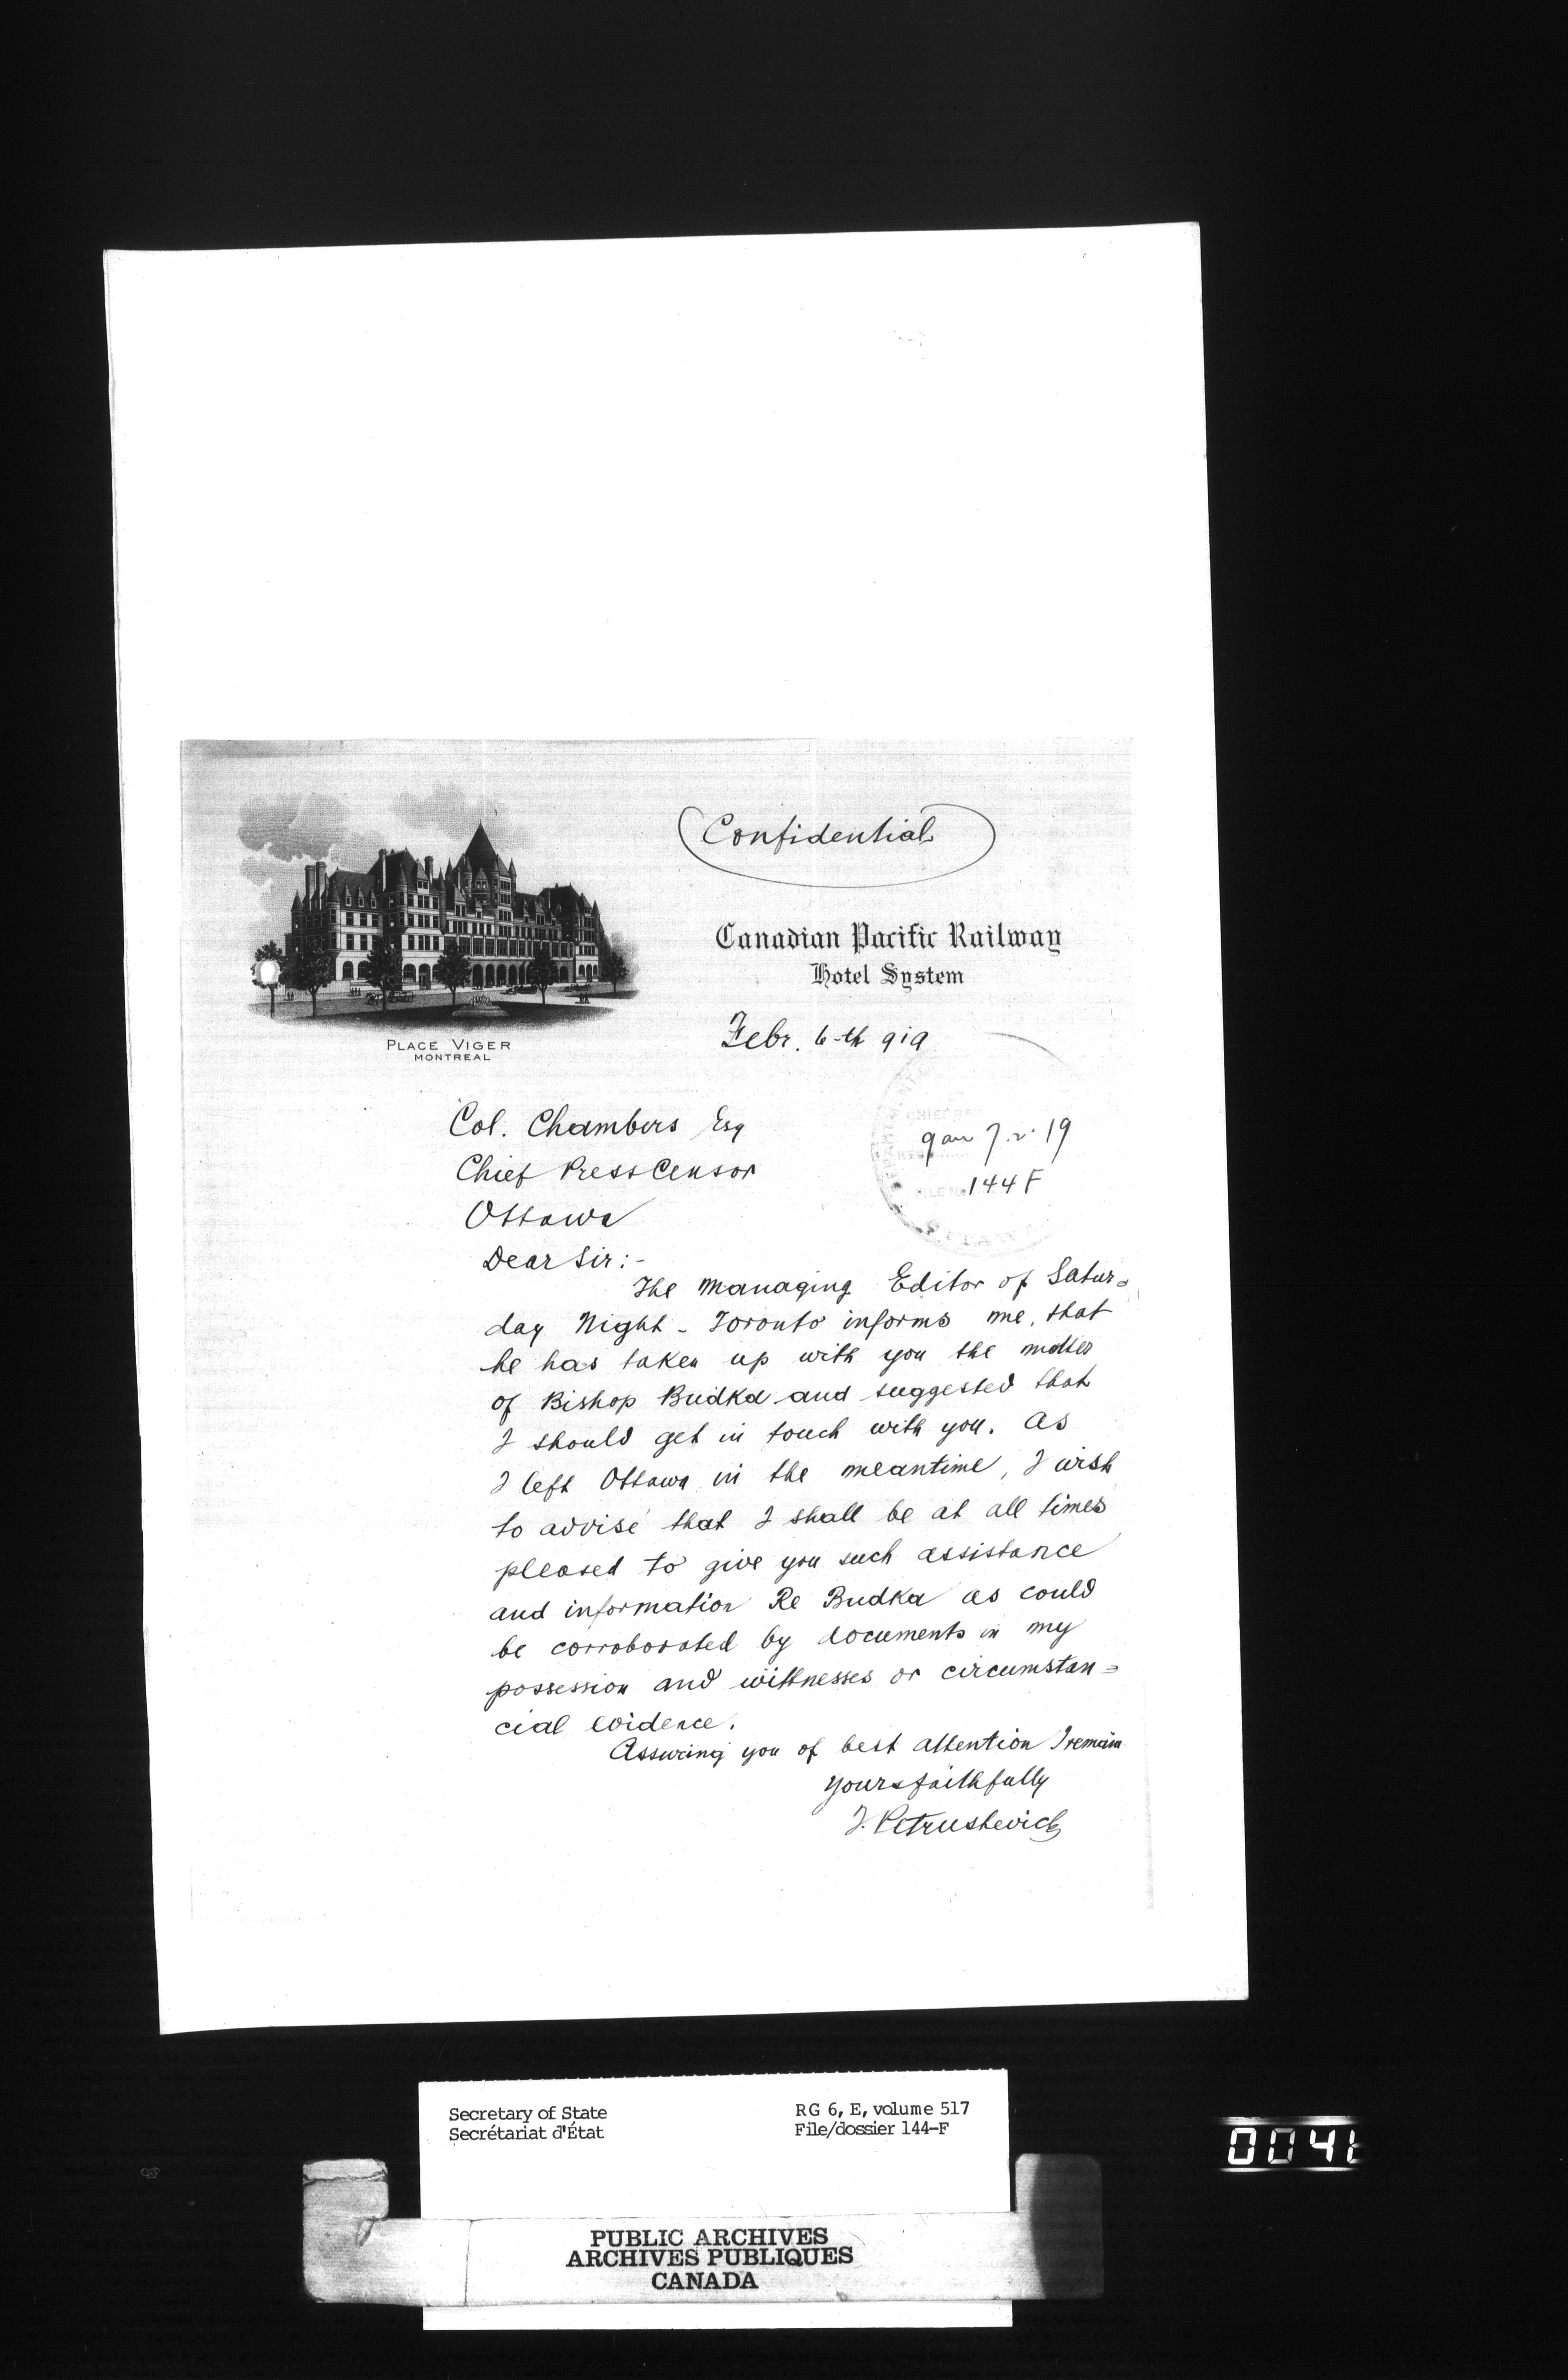 Confidential
Canadian Pacific Railway
Hotel System
PLACE VIGER
MONTREAL
Febr. 6-th 919
Col. Chambers Esq
Chief Press Censor
Ottawa
CHIEF
7.2.19
FILE No. 144 F
OTTAWA
Dear Sir:-
The Managing Editor of Satur=
day Night - Toronto informs me, that
he has taken up with you the matter
of Bishop Budka and suggested that
I should get in touch with you. As
I left Ottawa in the meantime, I wish
to advise that I shall be at all times
pleased to give you such assistance
and information Re Budka as could
be corroborated by documents in my
possession and wittnesses or circumstan=
cial evidence.
Assuring you of best attention I remain
yours faithfully
I. Petrushevich
Secretary of State
Secrétariat d'État
RG 6, E, volume 517
File/dossier 144-F
0041
PUBLIC ARCHIVES
ARCHIVES PUBLIQUES
CANADA